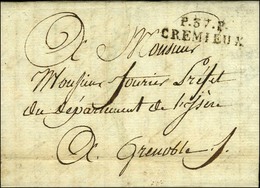 P.37.P.
CREMIEUX
A Monsieur
Monsieur fourier Préfet
du département de l'isere
A Grenoble